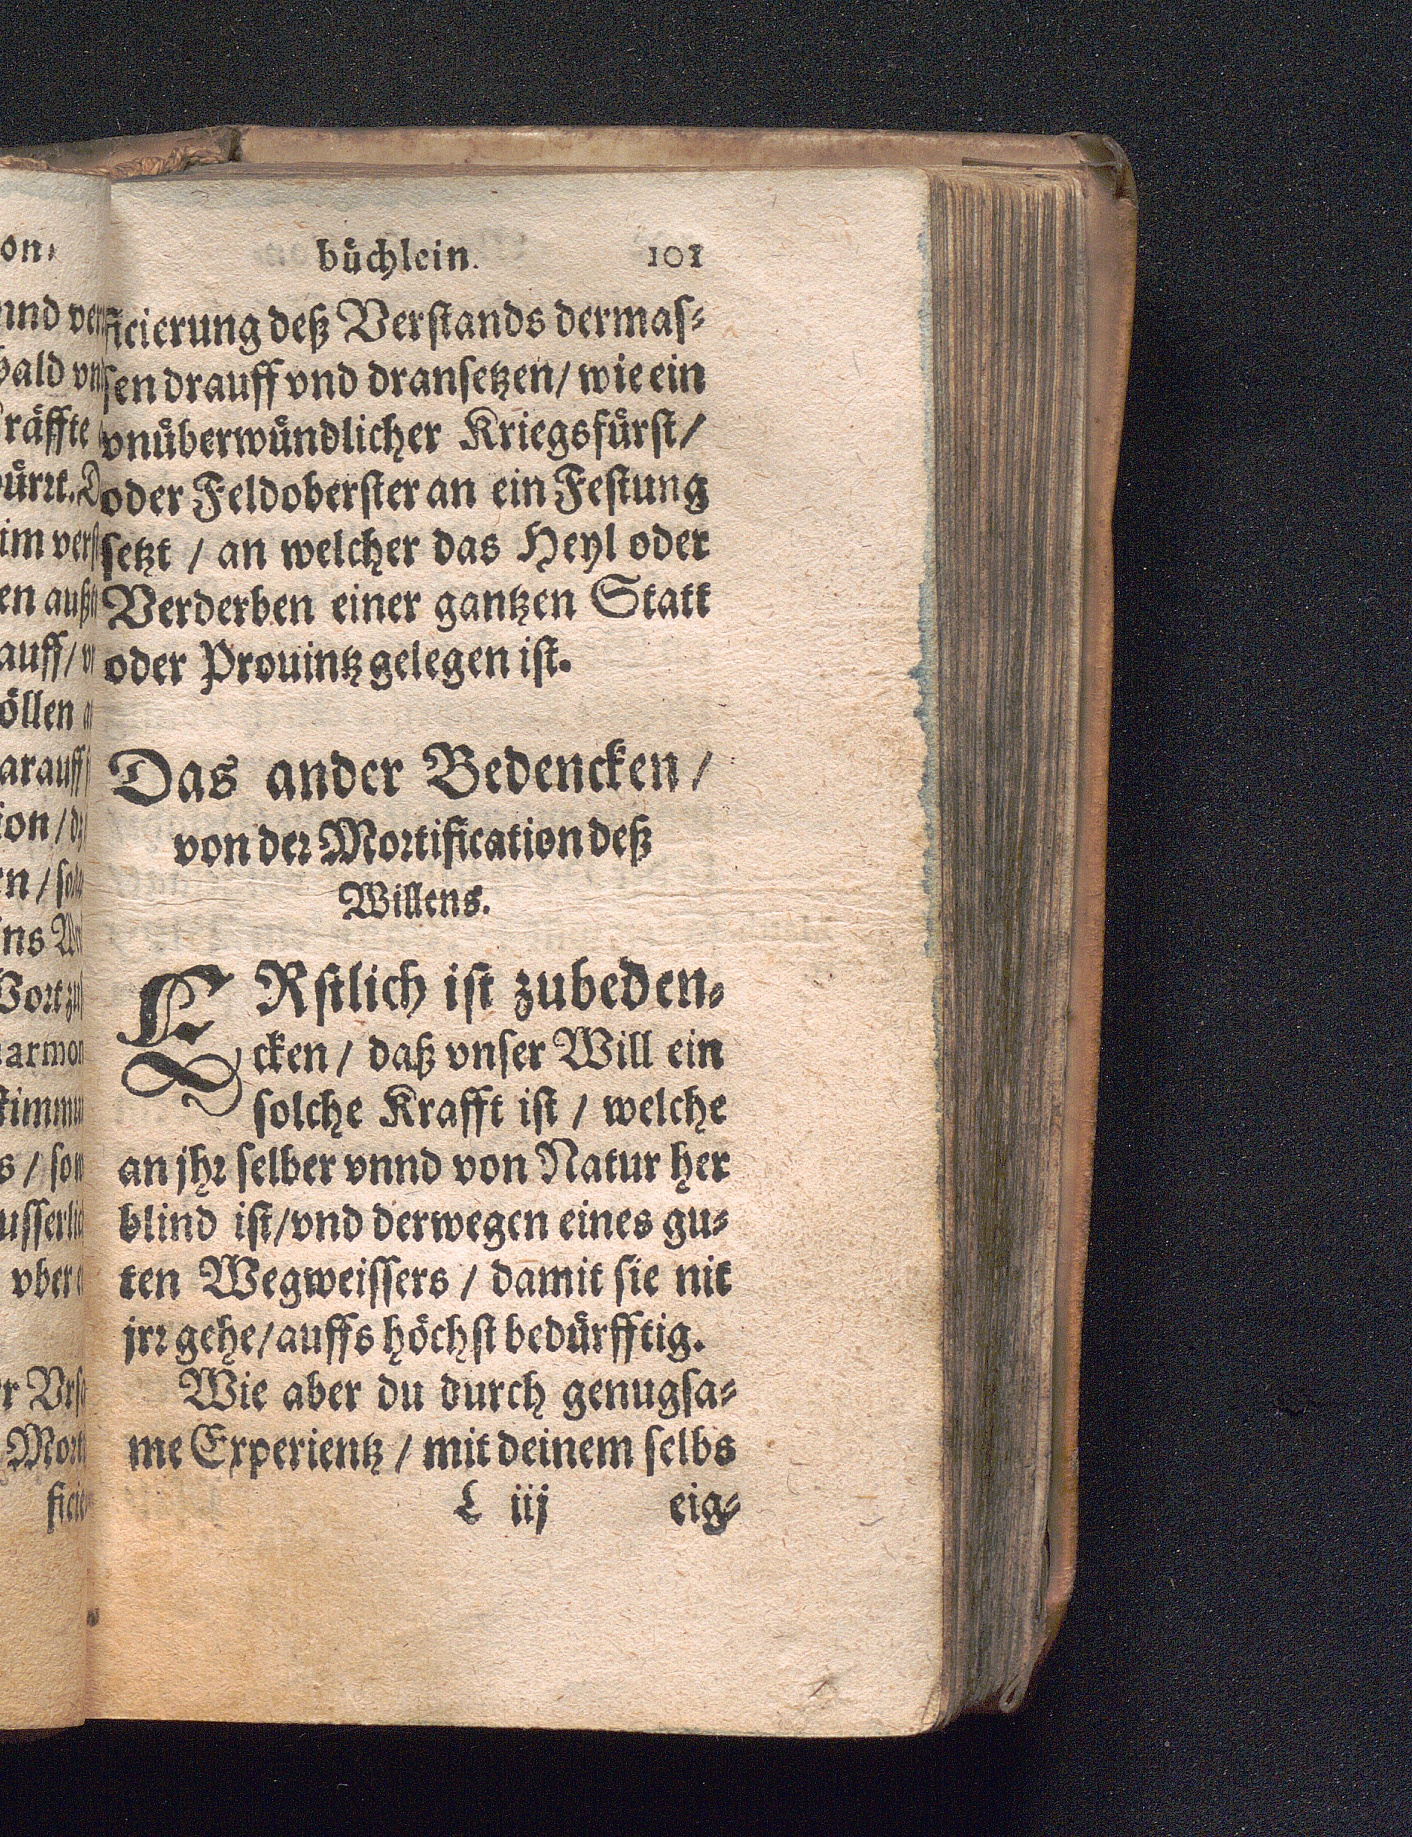 büchlein. 101
ficierung deß Verstands dermas⸗
sen drauff vnd dransetzen/ wie ein
vnüberwündlicher Kriegsfürst/
oder Feldoberster an ein Festung
setzt / an welcher das Heyl oder
Verderben einer gantzen Statt
oder Prouintz gelegen ist.
Das ander Bedencken /
von der Mortification deß
Willens.
ERstlich ist zubeden⸗
cken / daß vnser Will ein
solche Krafft ist / welche
an jhr selber vnnd von Natur her
blind ist/vnd derwegen eines gu⸗
ten Wegweissers / damit sie nit
jrr gehe/auffs höchst bedürfftig.
Wie aber du durch genugsa⸗
me Experientz / mit deinem selbs
L iij eig⸗